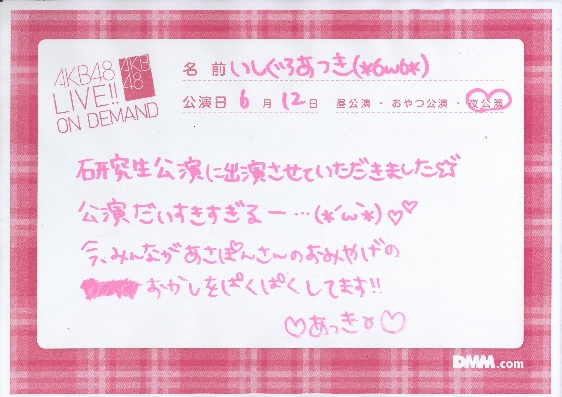 AKB48
LIVE!!
ON DEMAND
AKB
48
名 前 いしぐろあつき(*6ω6*)
公演日 6 月 12 日 昼公演・おやつ公演・夜公演
石研究生公演に出演させていただきました☆☆
公演だいすきすぎるー…(*´ω`*)♡♡
今、みんながあさぽんさんのおみやげの
おかしをぱくぱくしてます!!
♡あっきɤ♡
DMM.com